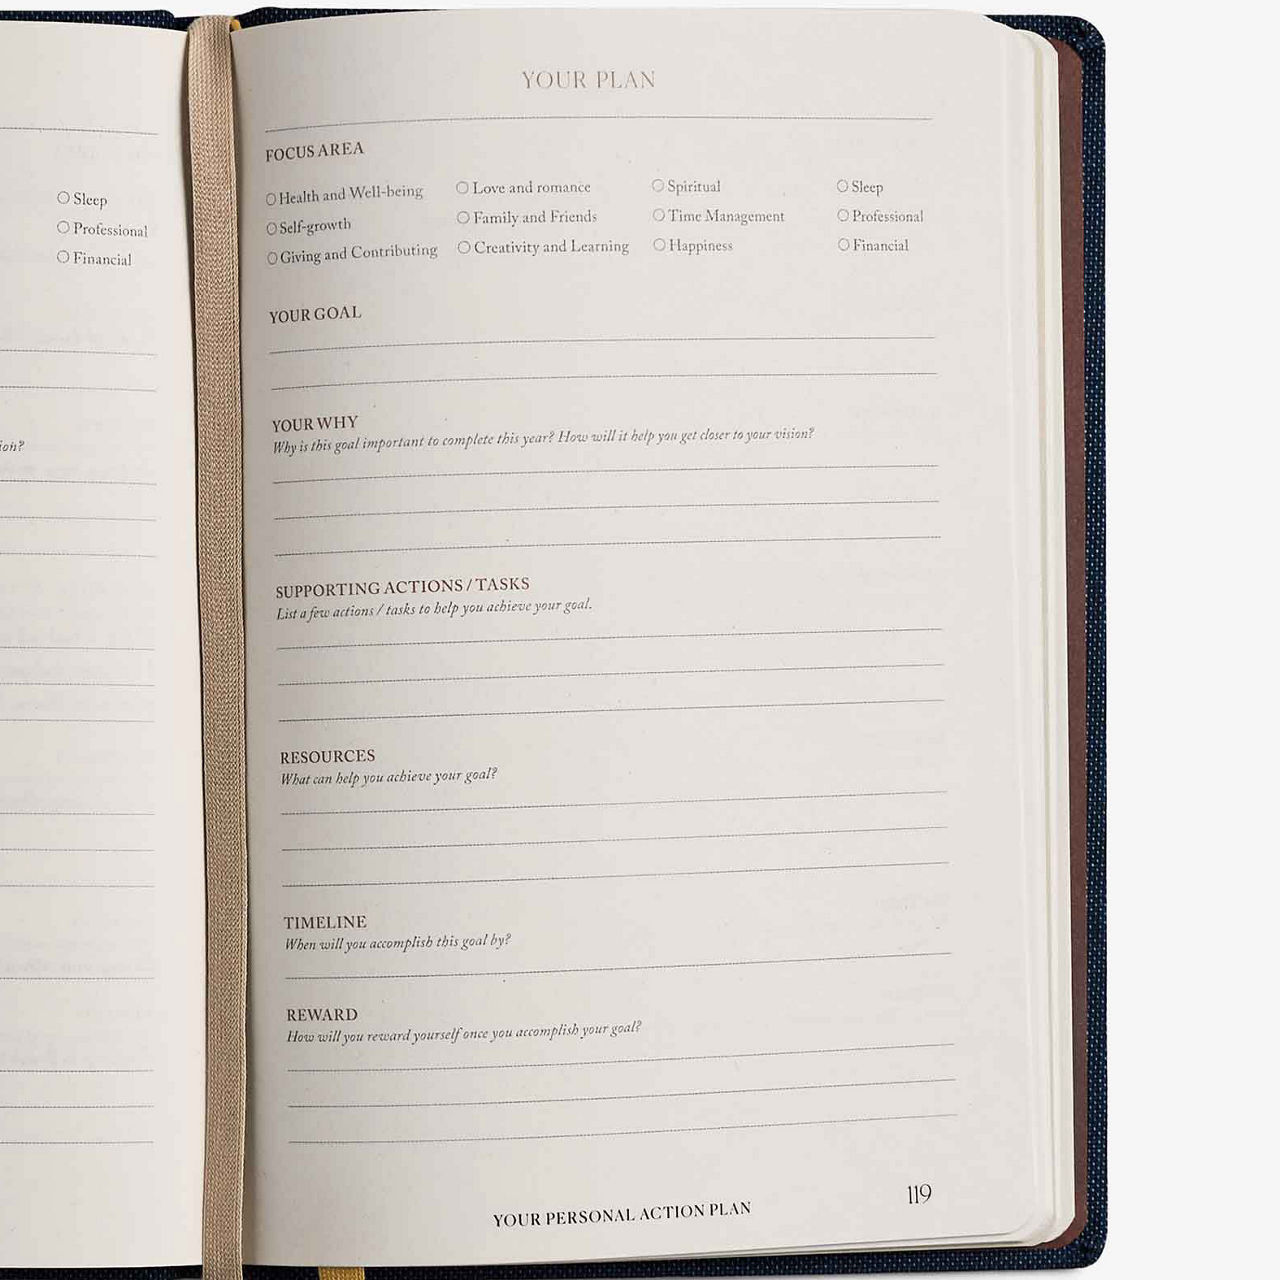 Sleep
Professional
Financial
ion?
YOUR PLAN
FOCUS AREA
Health and Well-being
Love and romance
Spiritual
Sleep
Self-growth
Family and Friends
Time Management
Professional
Giving and Contributing
Creativity and Learning
Happiness
Financial
YOUR GOAL
YOUR WHY
Why is this goal important to complete this year? How will it help you get closer to your vision?
SUPPORTING ACTIONS / TASKS
List a few actions / tasks to help you achieve your goal.
RESOURCES
What can help you achieve your goal?
TIMELINE
When will you accomplish this goal by?
REWARD
How will you reward yourself once you accomplish your goal?
YOUR PERSONAL ACTION PLAN
119